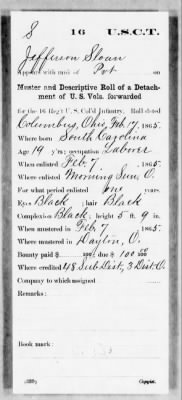 S 16 U.S.C.T.
Jefferson Sloan
Appears with rank of Pvt on
Muster and Descriptive Roll of a Detach-
ment of U. S. Vols. forwarded
for the 16 Reg't U. S. Col'd Infantry. Roll dated
Columbus, Ohio, Feb. 17, 1865.
Where born South Carolina
Age 19 y'rs; occupation Laborer
When enlisted Feb. 7, 1865.
Where enlisted Morning Sun, O.
For what period enlisted one years.
Eyes Black; hair Black
Complexion Black; height 5 ft. 9 in.
When mustered in Feb. 7, 1865.
Where mustered in Dayton, O.
Bounty paid $ 100; due $ 100 00/100
Where credited 48 Sub Dist, 3 Dist. O.
Company to which assigned
Remarks:
Book mark:
Copyist.